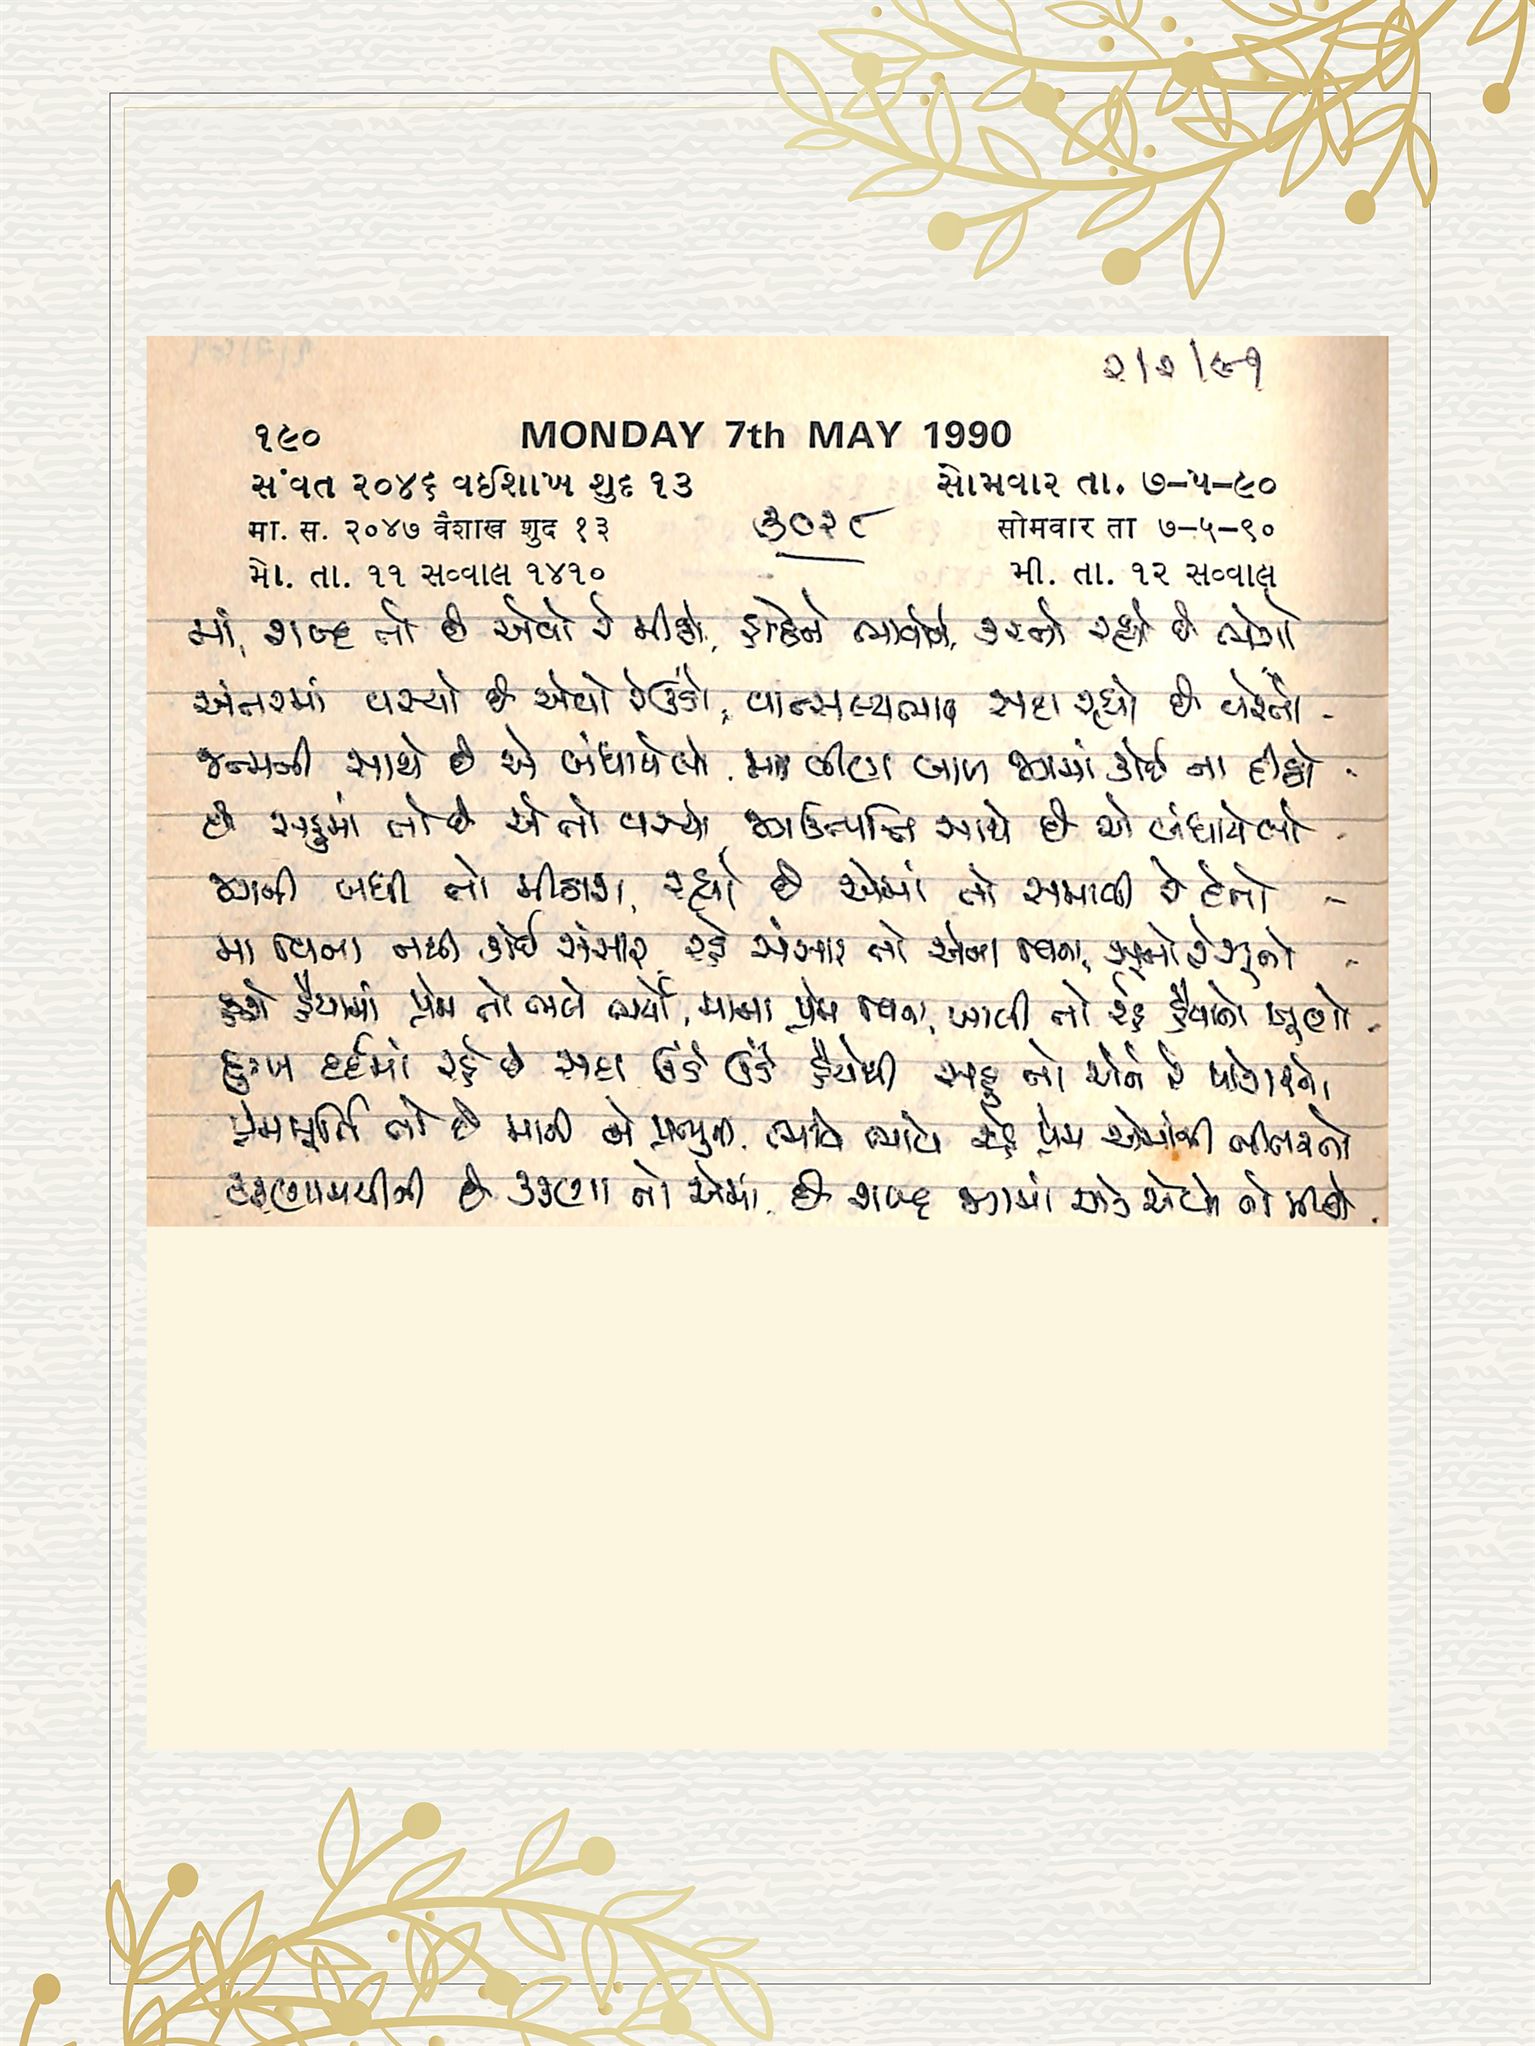 ૨/૨/૯૧
૧૯૦ MONDAY 7th MAY 1990
સંવત ૨૦૪૬ વઈશાખ શુદ ૧૩ સોમવાર તા. ૭-૫-૯૦
મા. સ. ૨૦૪૭ वैशाख शुद ૧૩ ૩૦૨૮ सोमवार ता ૭-૫-૯૦
મો. તા. ૧૧ સવ્વાલ ૧૪૧૦ મી. તા. ૧૨ સવ્વાલ
માં, શબ્દ તો છે એવો રે મીઠો, ભાવોને, કરતો રહ્યો છે ભેગો
અંતરમાં વસ્યો છે એવો રે ઊંડો, વાત્સલ્યભાવ સદા રહ્યો છે વહેતો -
જન્મની સાથે છે એ બંધાયેલો. મા વીણા બાળ જગમાં કોઈ ના દીઠો -
છે સહુમાં તો છે એ તો વસ્યો જગઉત્પત્તિ સાથે છે એ બંધાયેલો -
જગની બધી તો મીઠાશ, રહ્યો છે એમાં તો સમાવી રે દેતો -
મા વિના નથી કોઈ સંસાર, રહે સંસાર તો એના વિના, સૂનો રે સૂનો -
હશે હૈયામાં પ્રેમ તો ભલે ભર્યો, માના પ્રેમ વિના, ખાલી તો રહે હૈયાનો ખૂણો -
દુઃખ દર્દમાં રહે છે સદા ઊંડે ઊંડે હૈયેથી સહુ તો એને રે પોકારતો
પ્રેમમૂર્તિ તો છે માની એ પ્રભુતા. ભાવે ભાવે રહે પ્રેમ એમાંથી નીતરતો
કરુણામયીની છે કરુણા તો એમાં. છે શબ્દ જગમાં એક એકો તો મીઠો.